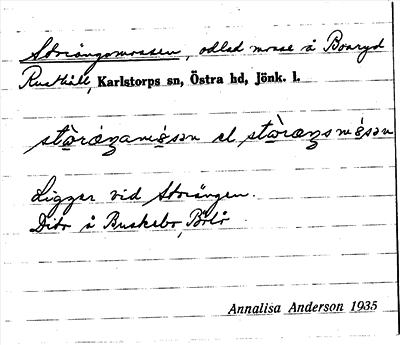 Storängsmossen, odlad mosse å Boaryd
Rusthåll, Karlstorps sn, Östra hd, Jönk. l.
stòraŋamósən el stòraŋsmósən
Ligger vid Storängen.
Dito å Buskebo,
Annalisa Anderson 1935